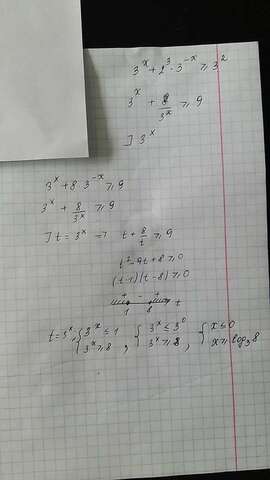 3^x + 2^3 · 3^-x ⩾ 3^2
3^x + 8/3^x ⩾ 9
] 3^x
3^x + 8 3^-x ⩾ 9
3^x + 8/3^x ⩾ 9
] t = 3^x => t + 8/t ⩾ 9
t^2 - 9t + 8 ⩾ 0
(t-1)(t-8) ⩾ 0
+ - +
1 8 t
t = 3^x, { 3^x ≤ 1 , { 3^x ≤ 3^0 , { x ≤ 0
3^x ⩾ 8 3^x ⩾ 8 x ⩾ log_3 8